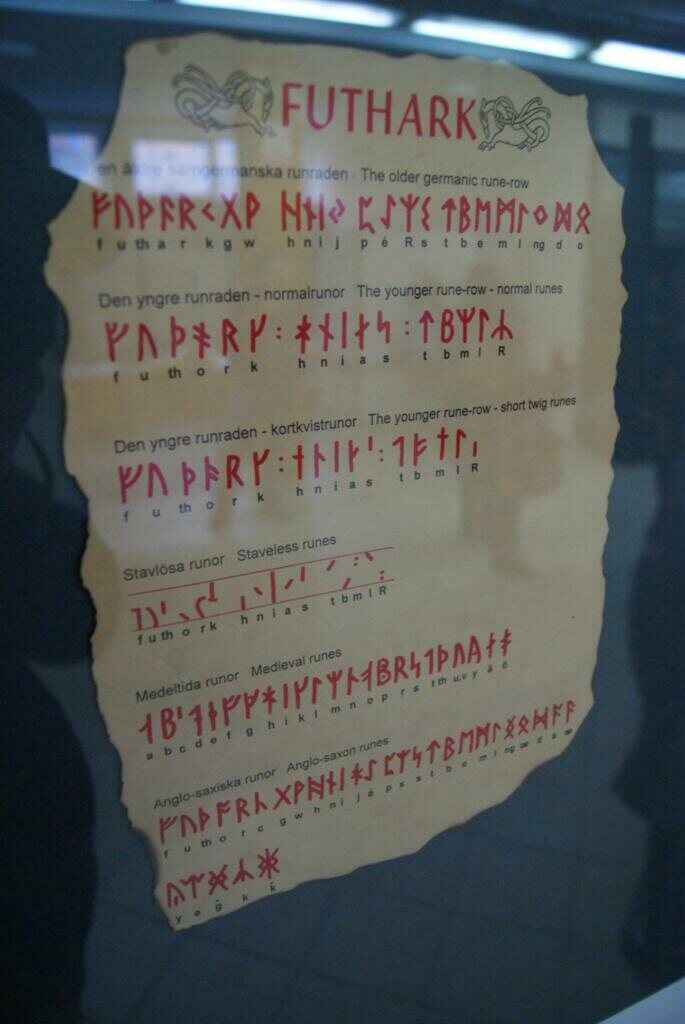 FUTHARK
Den äldre samgermanska runraden The older germanic rune-row
ᚠᚢᚦᚨᚱᚲᚷᚹ ᚺᚾᛁᛃ ᛈᛇᛉᛊ ᛏᛒᛖᛗᛚᛜᛞᛟ
f u th a r k g w h n i j p é R s t b e m l ng d o
Den yngre runraden - normalrunor The younger rune-row - normal runes
ᚠᚢᚦᚬᚱᚴ : ᚼᚾᛁᛅᛋ : ᛏᛒᛘᛚᛦ
f u th o r k h n i a s t b m l R
Den yngre runraden - kortkvistrunor The younger rune-row - short twig runes
f u th o r k h n i a s t b m l R
Stavlösa runor Staveless runes
f u th o r k h n i a s t b m l R
Medeltida runor Medieval runes
a b c d e f g h i k l m n o p r s t th u,v y ä ö
Anglo-saxiska runor Anglo-saxon runes
f u th o r c g w h n i j é p x s t b e m l ng œ d a æ
y e ḡ k k̄